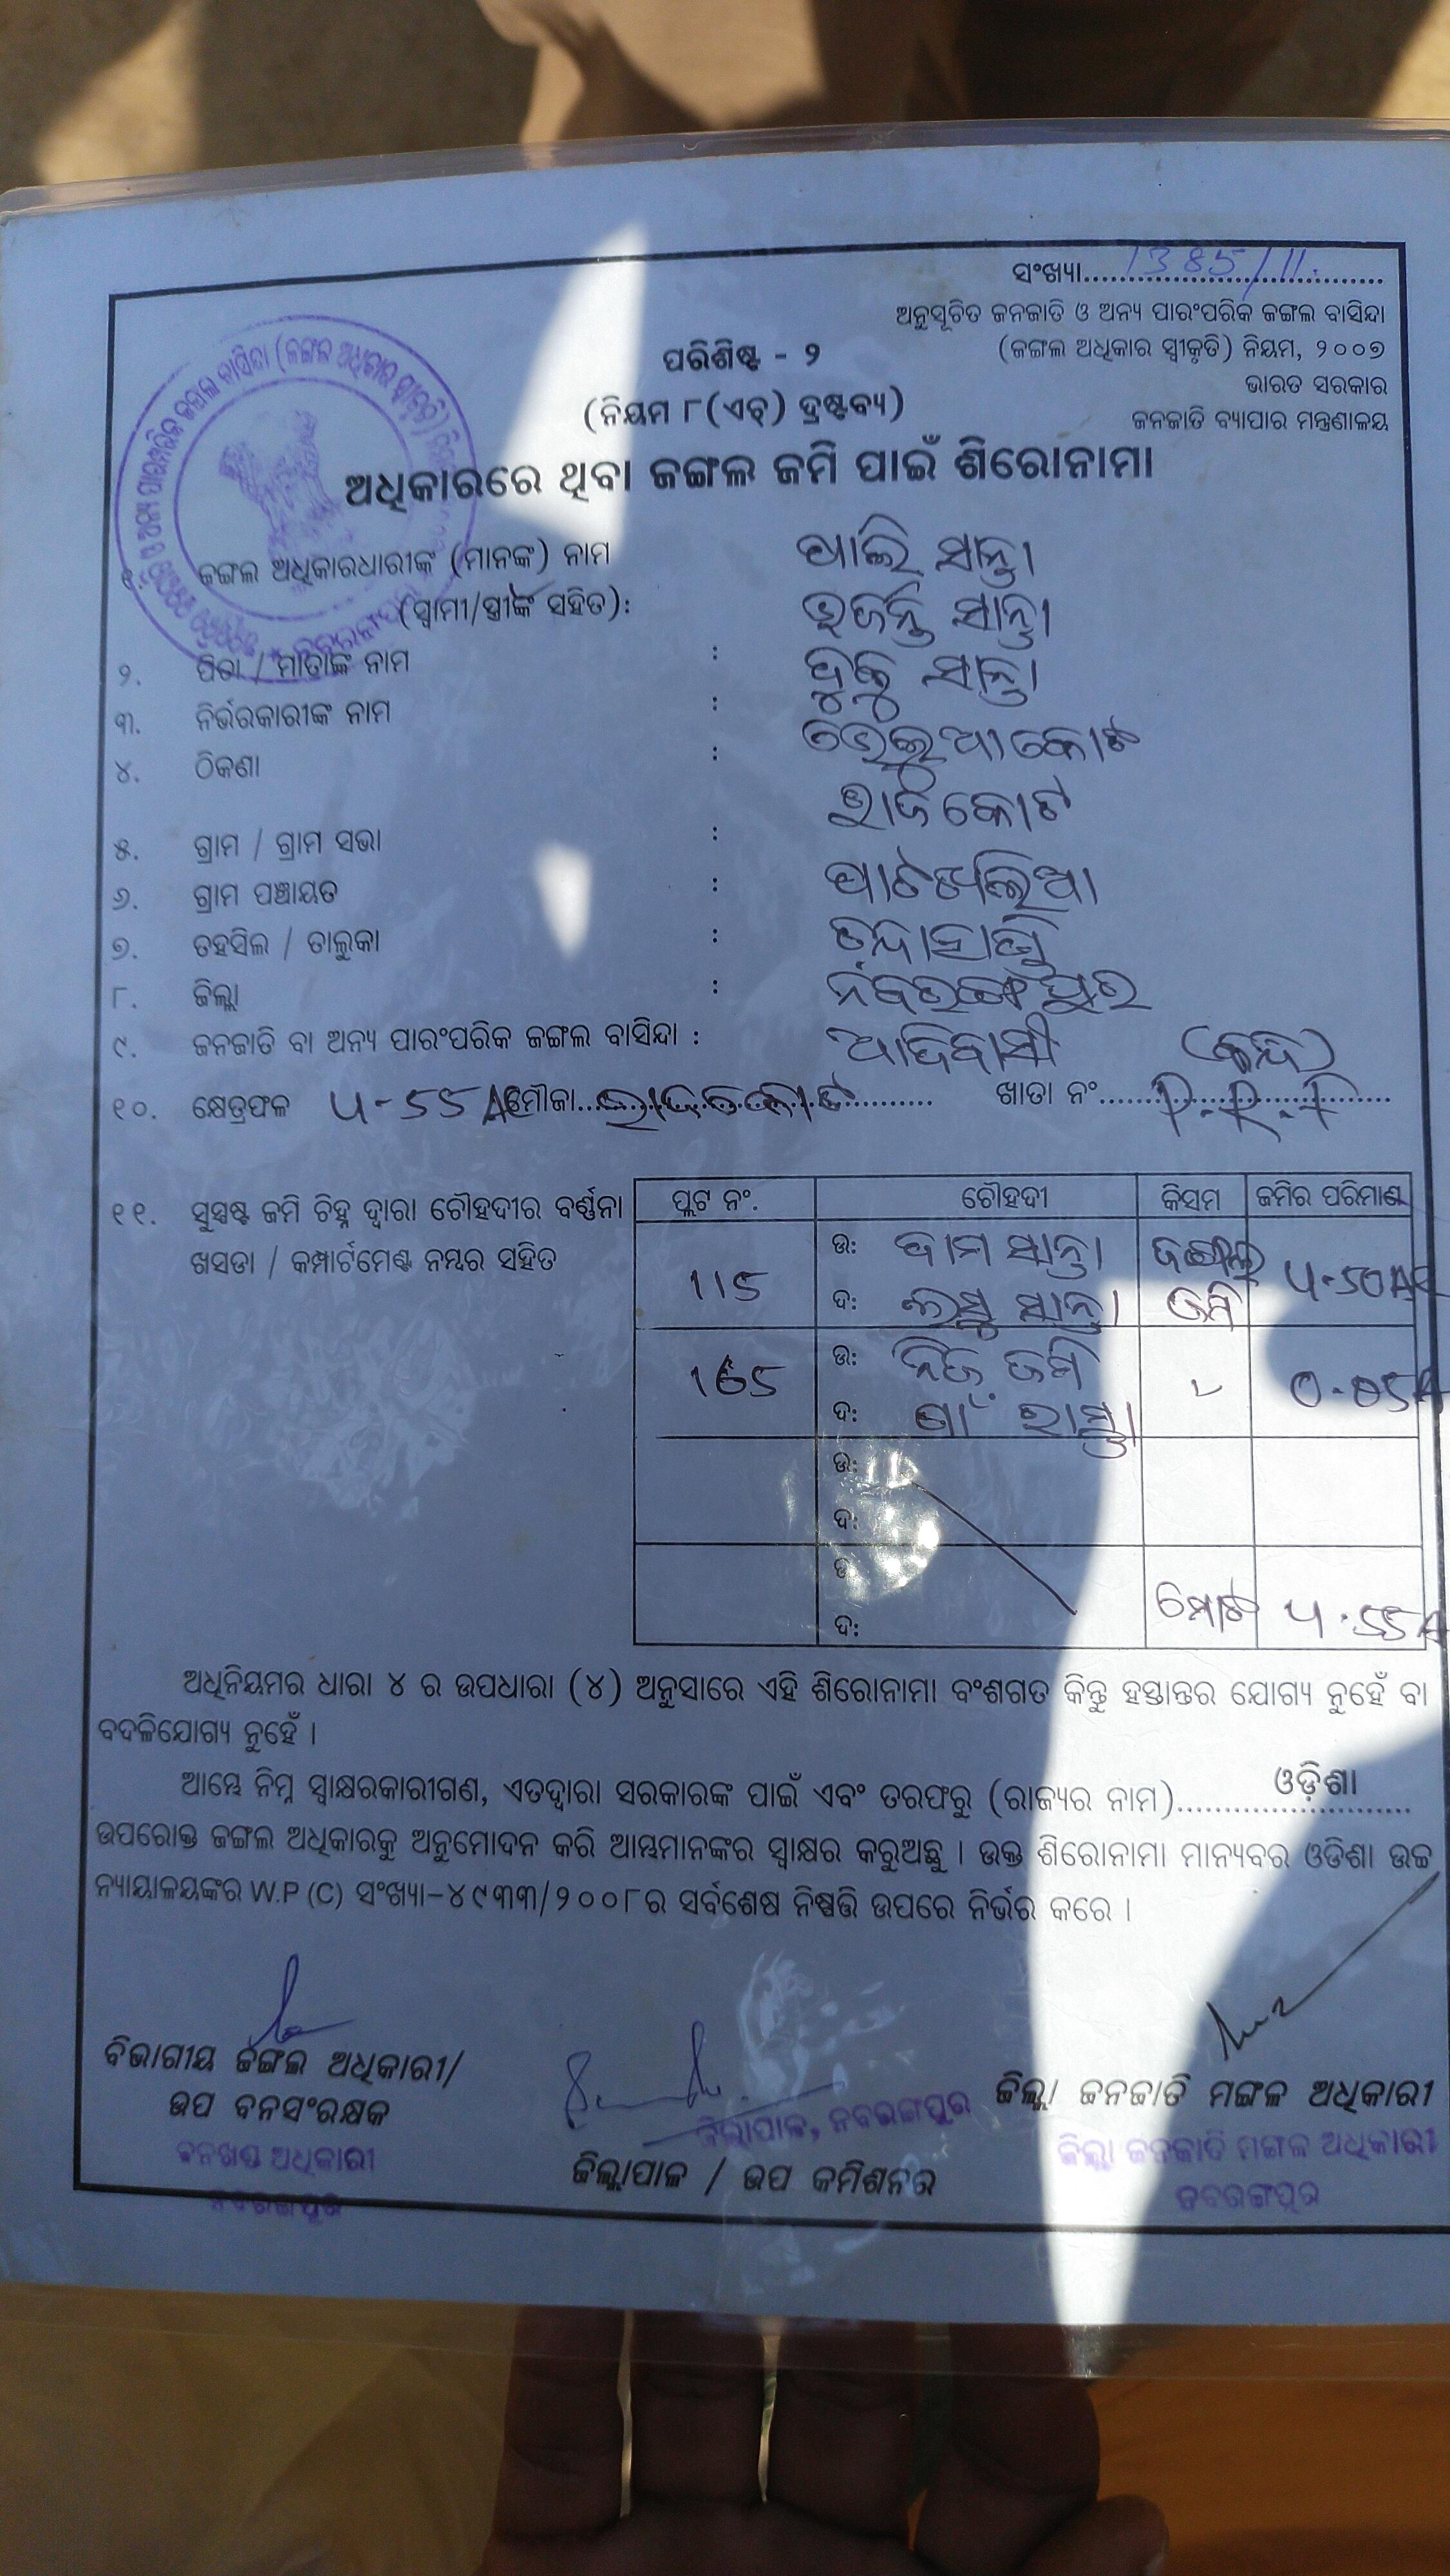 ସଂଖ୍ୟା.......1385/11.......
ଅନୁସୂଚିତ ଜନଜାତି ଓ ଅନ୍ୟ ପାରଂପରିକ ଜଙ୍ଗଲ ବାସିନ୍ଦା
(ଜଙ୍ଗଲ ଅଧିକାର ସ୍ୱୀକୃତି) ନିୟମ, ୨୦୦୭
ଭାରତ ସରକାର
ଜନଜାତି ବ୍ୟାପାର ମନ୍ତ୍ରଣାଳୟ
ପରିଶିଷ୍ଟ - ୨
(ନିୟମ ୮(ଏଚ୍) ଦ୍ରଷ୍ଟବ୍ୟ)
ଅଧିକାରରେ ଥିବା ଜଙ୍ଗଲ ଜମି ପାଇଁ ଶିରୋନାମା
ଜଙ୍ଗଲ ଅଧିକାରଧାରୀଙ୍କ (ମାନଙ୍କ) ନାମ ପାଲି ସାନ୍ତା
(ସ୍ୱାମୀ/ସ୍ତ୍ରୀଙ୍କ ସହିତ): ସାନ୍ତା
୨. ପିତା / ମାତାଙ୍କ ନାମ : ସାନ୍ତା
୩. ନିର୍ଭରକାରୀଙ୍କ ନାମ :
୪. ଠିକଣା :
୫. ଗ୍ରାମ / ଗ୍ରାମ ସଭା :
୬. ଗ୍ରାମ ପଞ୍ଚାୟତ :
୭. ତହସିଲ / ତାଲୁକା :
୮. ଜିଲ୍ଲା : ନବରଙ୍ଗପୁର
୯. ଜନଜାତି ବା ଅନ୍ୟ ପାରଂପରିକ ଜଙ୍ଗଲ ବାସିନ୍ଦା : ଆଦିବାସୀ
୧୦. କ୍ଷେତ୍ରଫଳ ମୌଜା............ ଖାତା ନଂ............
୧୧. ସୁସ୍ପଷ୍ଟ ଜମି ଚିହ୍ନ ଦ୍ୱାରା ଚୌହଦୀର ବର୍ଣ୍ଣନା
ଖସଡା / କମ୍ପାର୍ଟମେଣ୍ଟ ନମ୍ବର ସହିତ
ପ୍ଲଟ ନଂ. ଚୌହଦୀ କିସମ ଜମିର ପରିମାଣ
115 ଉ: ସାନ୍ତା
ଦ: ସାନ୍ତା ଜମି
165 ଉ: ନିଜ ଜମି
ଦ: ଗାଁ ରାସ୍ତା
ଉ:
ଦ:
ଉ:
ଦ: ମୋଟ
ଅଧିନିୟମର ଧାରା ୪ ର ଉପଧାରା (୪) ଅନୁସାରେ ଏହି ଶିରୋନାମା ବଂଶଗତ କିନ୍ତୁ ହସ୍ତାନ୍ତର ଯୋଗ୍ୟ ନୁହେଁ ବା
ବଦଳିଯୋଗ୍ୟ ନୁହେଁ ।
ଆମ୍ଭେ ନିମ୍ନ ସ୍ୱାକ୍ଷରକାରୀଗଣ, ଏତଦ୍ଵାରା ସରକାରଙ୍କ ପାଇଁ ଏବଂ ତରଫରୁ (ରାଜ୍ୟର ନାମ)......ଓଡ଼ିଶା......
ଉପରୋକ୍ତ ଜଙ୍ଗଲ ଅଧିକାରକୁ ଅନୁମୋଦନ କରି ଆମ୍ଭମାନଙ୍କର ସ୍ୱାକ୍ଷର କରୁଅଛୁ । ଉକ୍ତ ଶିରୋନାମା ମାନ୍ୟବର ଓଡିଶା ଉଚ୍ଚ
ନ୍ୟାୟାଳୟଙ୍କର W.P (C) ସଂଖ୍ୟା-୪୯୩୩/୨୦୦୮ ର ସର୍ବଶେଷ ନିଷ୍ପତ୍ତି ଉପରେ ନିର୍ଭର କରେ ।
ବିଭାଗୀୟ ଜଙ୍ଗଲ ଅଧିକାରୀ/
ଉପ ବନସଂରକ୍ଷକ
ବନଖଣ୍ଡ ଅଧିକାରୀ
ନବରଙ୍ଗପୁର
ଜିଲ୍ଲାପାଳ, ନବରଙ୍ଗପୁର
ଜିଲ୍ଲାପାଳ / ଉପ କମିଶନର
ଜିଲ୍ଲା ଜନଜାତି ମଙ୍ଗଳ ଅଧିକାରୀ
ଜିଲ୍ଲା ଜନଜାତି ମଙ୍ଗଳ ଅଧିକାରୀ
ନବରଙ୍ଗପୁର